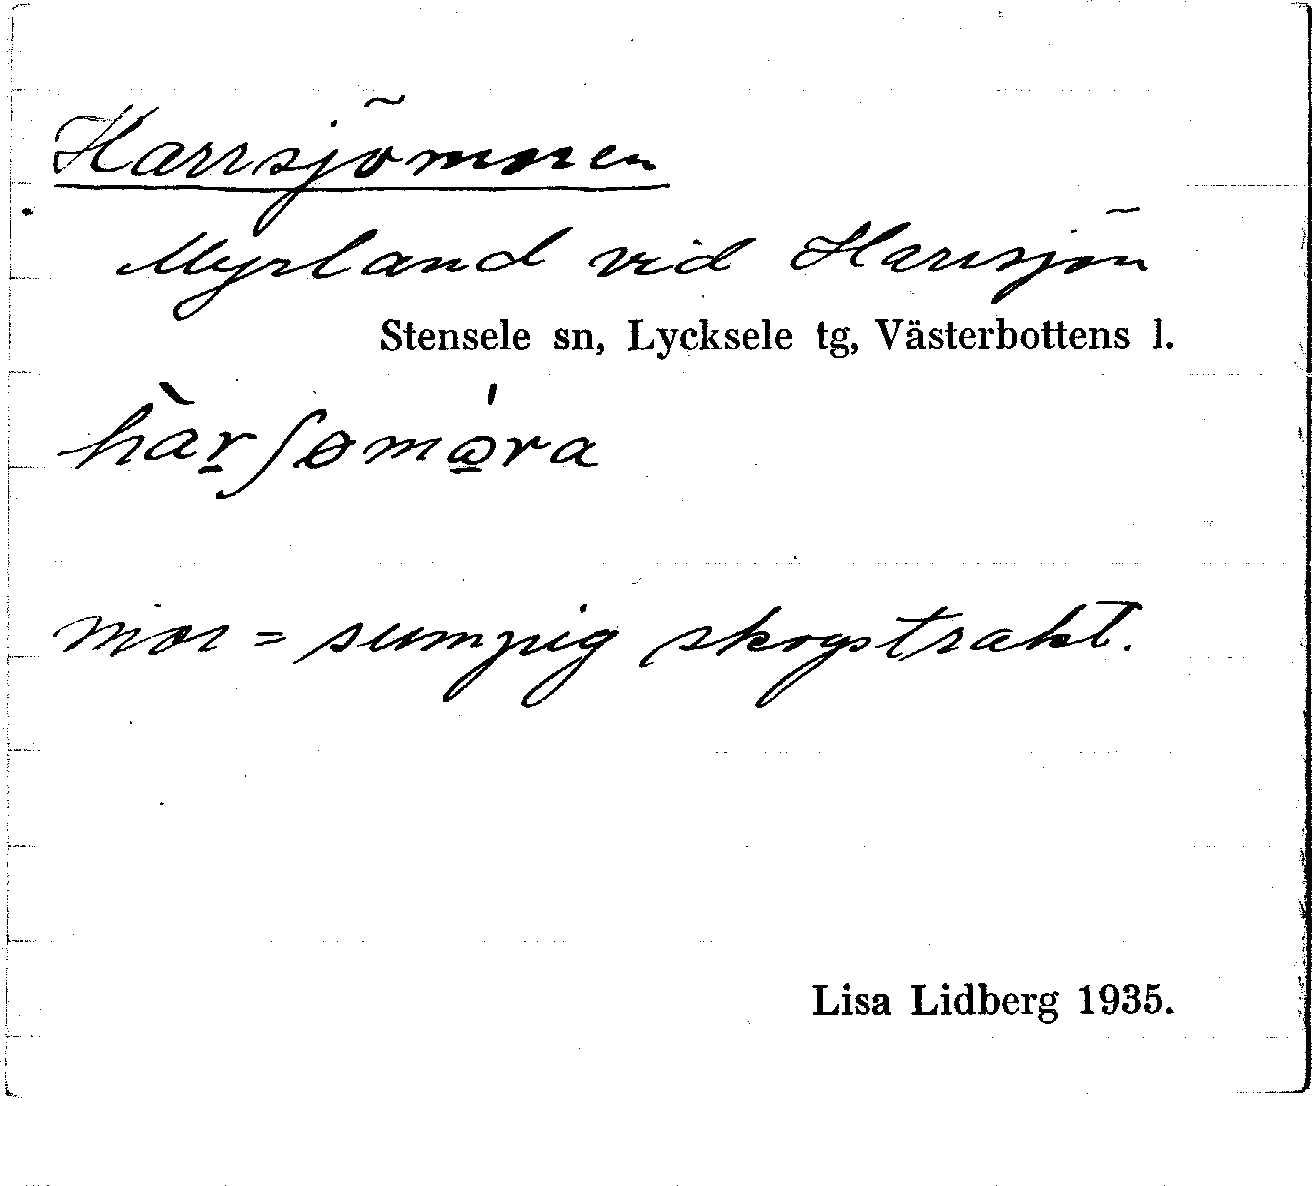 Harrsjömoren
Myrland vid Harrsjön
Stensele sn, Lycksele tg, Västerbottens l.
mor = sumpig skogstrakt.
Lisa Lidberg 1935.